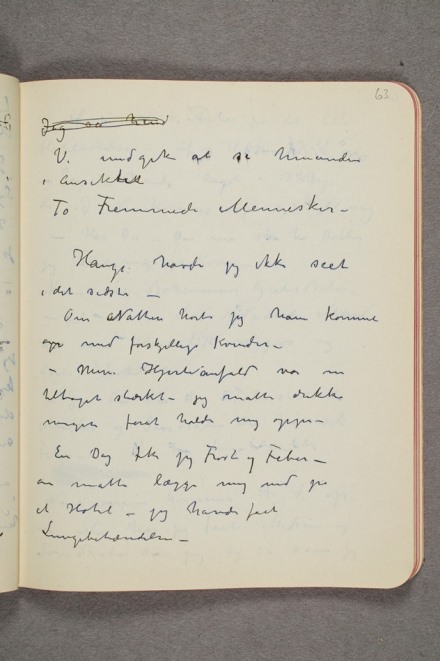 63
Jeg saa ham
Vi undgik at se hinanden
i Ansiktet
To Fremmede Mennesker –
Hange havde jeg ikke seet
i det sidste –
Om Natten hørte jeg ham komme
op med forskjellige Kvinder –
– Mine Hjerteanfald var
tiltaget stærkt – jeg maatte drikke
meget forat holde mig oppe –
En Dag fik jeg Frost og Feber –
maatte lægge mig ned på
et Hotel – jeg havde faat
Lungebetændelse –